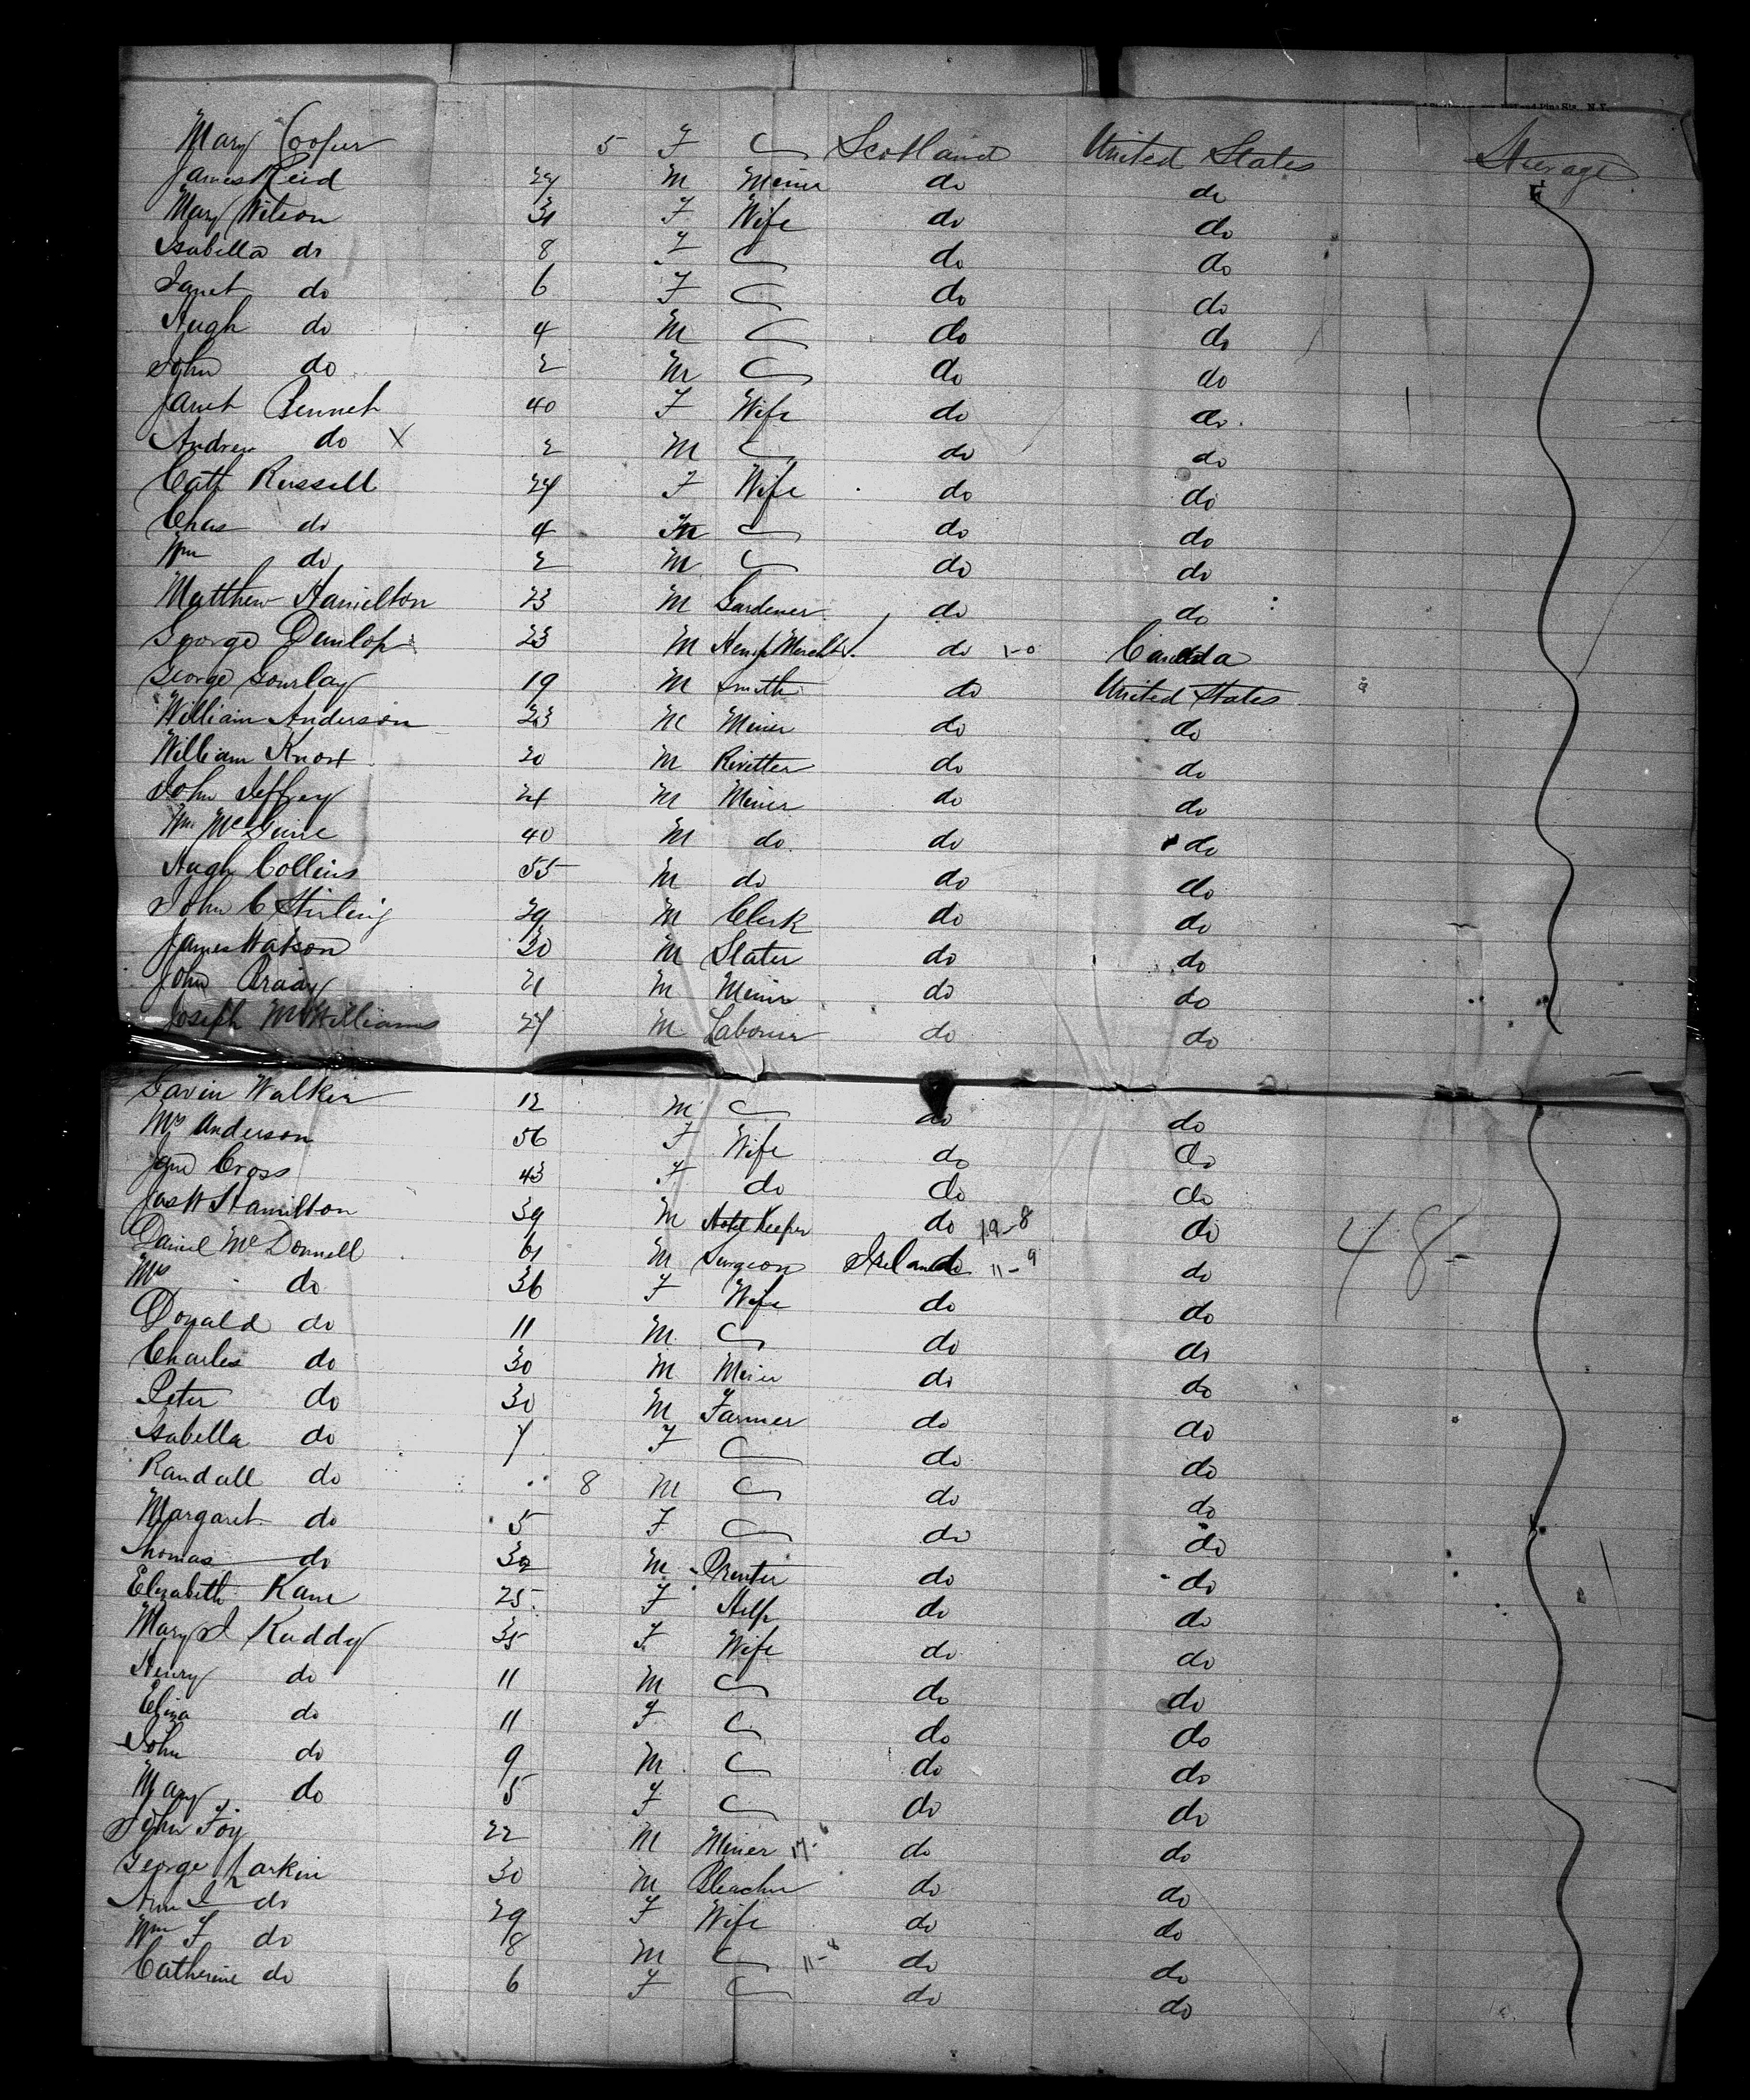 Mary Cooper 5 F C Scotland United States Steerage
James Reid 24 M Miner do do
Mary Wilson 31 F Wife do do
Isabella do 8 F C do do
Janet do 6 F C do do
Hugh do 4 M C do do
John do 2 M C do do
Janet Bennet 40 F Wife do do
Andrew do X 2 M C do do
Cath Russell 27 F Wife do do
Chas do 4 M C do do
Wm do 2 M C do do
Matthew Hamilton 23 M Gardener do do
George Dunlop 23 M Mercht do Canada
George Gourlay 19 M Smith do United States
William Anderson 23 M Miner do do
William Knox 20 M Rivetter do do
John Jeffrey 21 M Miner do do
Wm McGuire 40 M do do do
Hugh Collins 55 M do do do
John C Stirling 29 M Clerk do do
James Watson 20 M Slater do do
John Brady 21 M Miner do do
Joseph McWilliams 27 M Laborer do do
Gavin Walker 12 M C do do
Mrs Anderson 56 F Wife do do
Jane Cross 43 F do do do
Jas W Hamilton 39 M Hotel Keeper do 19-8 do 48-
Daniel McDonnell 61 M Surgeon Ireland 11-9 do
Mrs do 36 F Wife do do
Donald do 11 M C do do
Charles do 30 M Miner do do
Peter do 30 M Farmer do do
Isabella do 7 F C do do
Randall do 8 M C do do
Margaret do 5 F C do do
Thomas do 32 M Printer do do
Elizabeth Kane 25 F Help do do
Mary J Kuddy 35 F Wife do do
Henry do 11 M C do do
Eliza do 11 F C do do
John do 9 M C do do
Mary do 5 F C do do
John Foy 22 M Miner 17-6 do do
George Larkin 30 M Bleacher do do
Ann J do 29 F Wife do do
Wm F do 8 M C 11-8 do do
Catherine do 6 F C do do